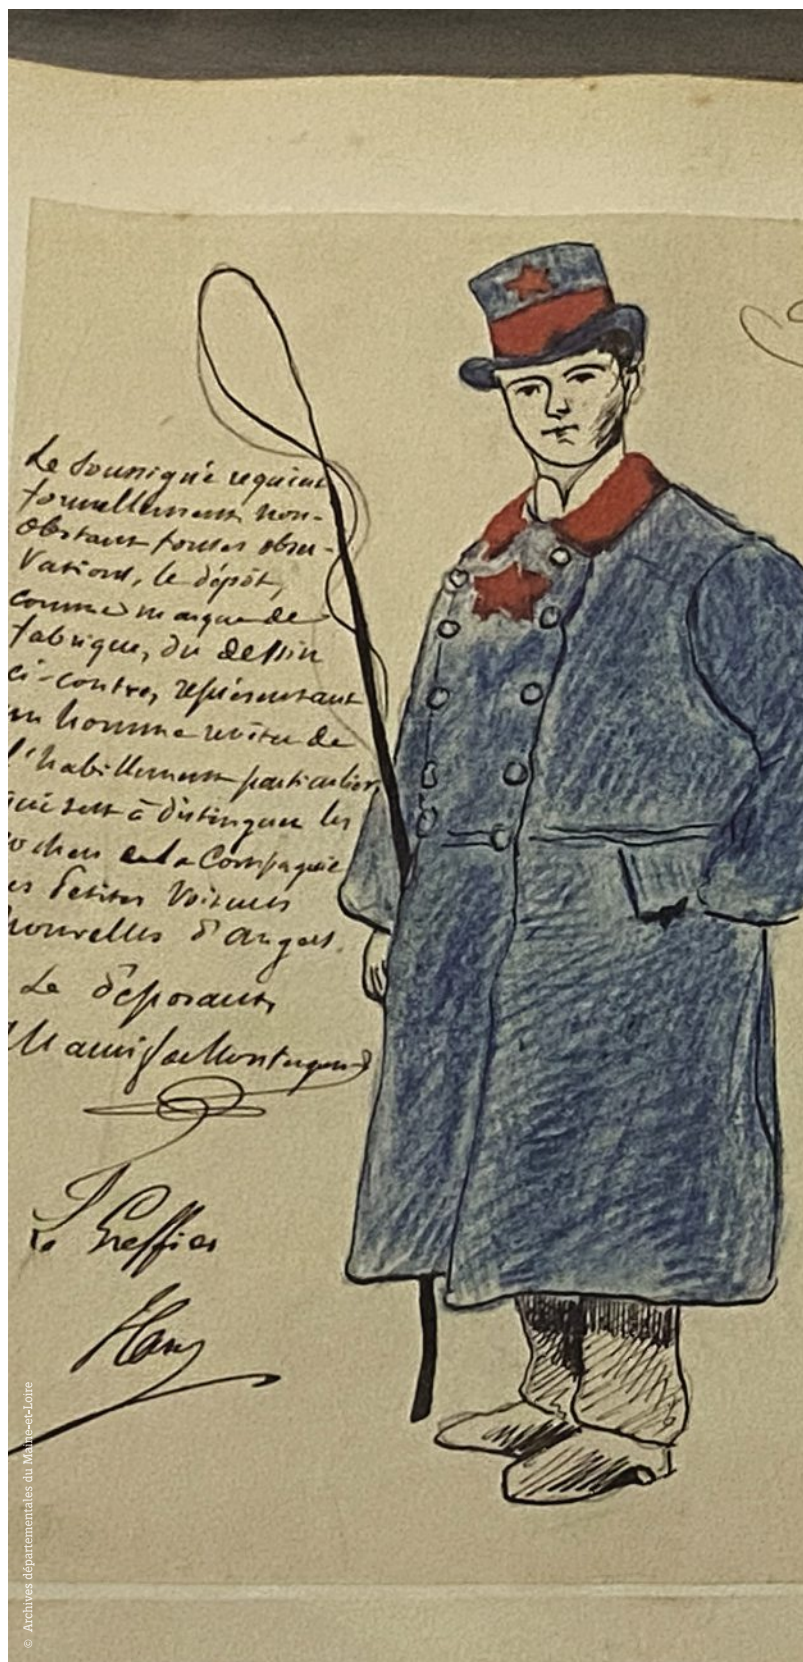 Le Soussigné requiert
formellement non-
obstant toutes obser-
vations, le dépôt,
comme marque de
fabrique, du dessin
ci-contre, représentant
un homme revêtu de
l'habillement particulier
qui sert à distinguer les
cochers de la Compagnie
des Petites Voitures
nouvelles d'Angers.
Le déposant,
Le Greffier
© Archives départementales du Maine-et-Loire